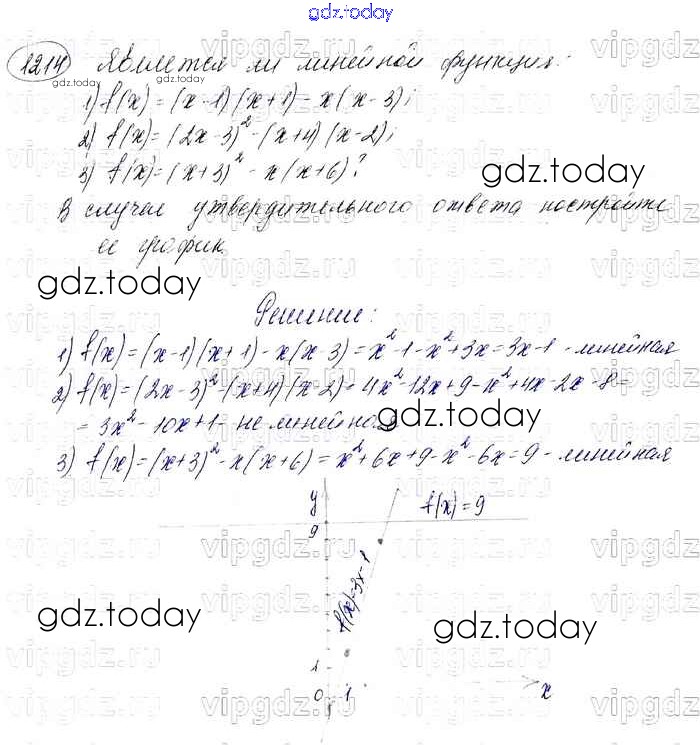 gdz.today
1214 Является ли линейной функция:
1) f(x) = (x-1)(x+1) - x(x-3);
gdz.today
2) f(x) = (2x-3)² - (x+4)(x-2);
3) f(x) = (x+3)² - x(x+6)?
gdz.today
В случае утвердительного ответа постройте
ее график.
gdz.today
vipgdz.ru
Решение:
1) f(x) = (x-1)(x+1) - x(x-3) = x²-1-x²+3x = 3x-1 - линейная
2) f(x) = (2x-3)² - (x+4)(x-2) = 4x²-12x+9-x²+4x-2x-8 =
= 3x²-10x+1 - не линейная
gdz.today
3) f(x) = (x+3)² - x(x+6) = x²+6x+9-x²-6x = 9 - линейная
y
9
f(x) = 9
vipgdz.ru
f(x) = 3x-1
gdz.today
gdz.today
1
0 1 x
vipgdz.ru